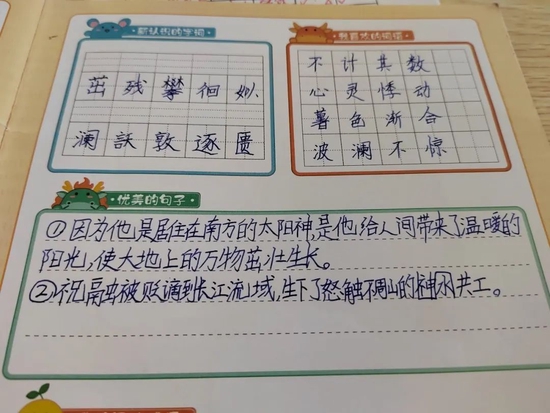 新认识的字词
茁 残 攀 徊
澜 訞 敦 逐 匮
我喜欢的词语
不 计 其 数
心 灵 悸 动
暮 色 渐 合
波 澜 不 惊
优美的句子
①因为他是居住在南方的太阳神,是他给人间带来了温暖的
阳光,使大地上的万物茁壮生长。
②祝融被贬谪到长江流域,生下了怒触不周山的神水共工。